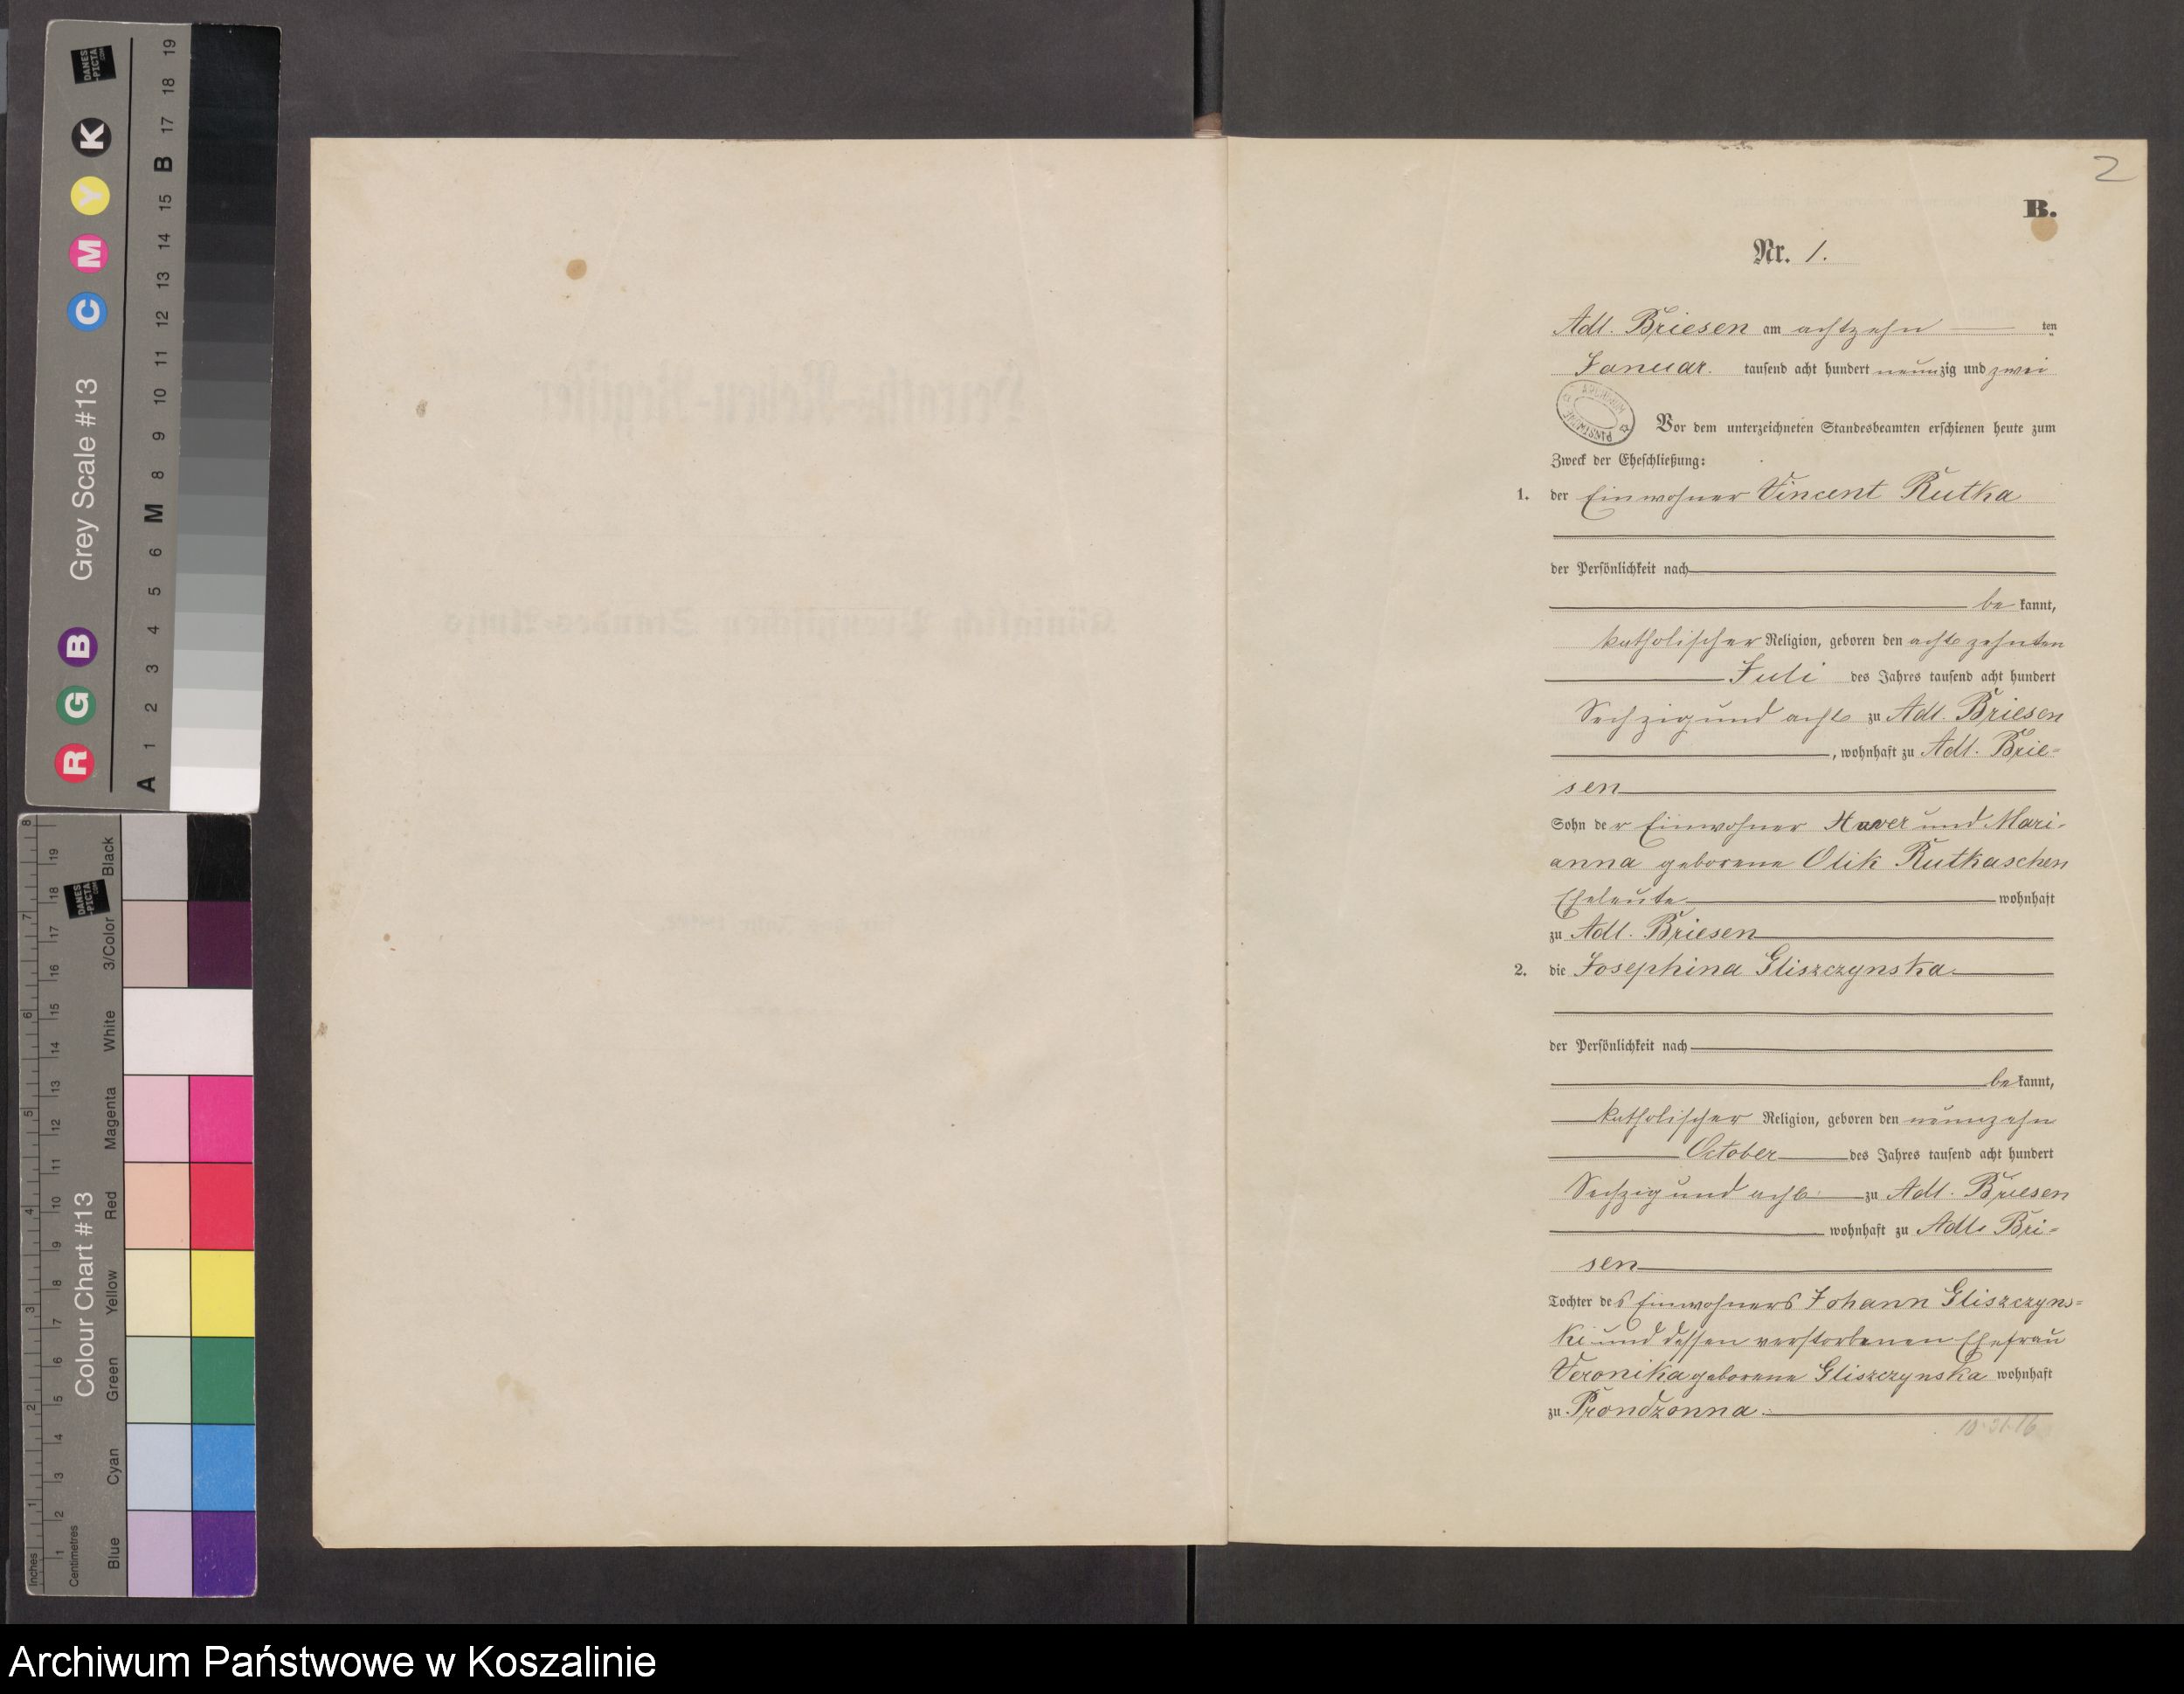 DANES
-PICTA
.COM
Grey Scale #13
R G B C M Y K
A 1 2 3 4 5 6 M 8 9 10 11 12 13 14 15 B 17 18 19
DANES
-PICTA
.COM
Colour Chart #13
Blue Cyan Green Yellow Red Magenta White 3/Color Black
Inches 1 2 3 4 5 6 7 8
Centimetres 1 2 3 4 5 6 7 8 9 10 11 12 13 14 15 16 17 18 19
2
B.
Nr. 1.
Adl. Briesen am achtzehn ten
Januar. tausend acht hundert neunzig und zwei
Vor dem unterzeichneten Standesbeamten erschienen heute zum
Zweck der Eheschließung:
1. der Einwohner Vincent Rutka
der Persönlichkeit nach
bekannt,
katholischer Religion, geboren den achtzehnten
Juli des Jahres tausend acht hundert
Sechzig und acht zu Adl. Briesen
, wohnhaft zu Adl. Brie-
sen
Sohn der Einwohner Xaver und Mari-
anna geborene Olik Rutkaschen
Eheleute wohnhaft
zu Adl. Briesen
2. die Josephina Gliszczynska
der Persönlichkeit nach
bekannt,
katholischer Religion, geboren den neunzehn
October des Jahres tausend acht hundert
Sechzig und acht zu Adl. Briesen
wohnhaft zu Adl. Bri-
sen
Tochter des Einwohners Johann Gliszczyns-
ki und dessen verstorbenen Ehefrau
Veronika geborene Gliszczynska wohnhaft
zu Prondzonna.
Archiwum Państwowe w Koszalinie